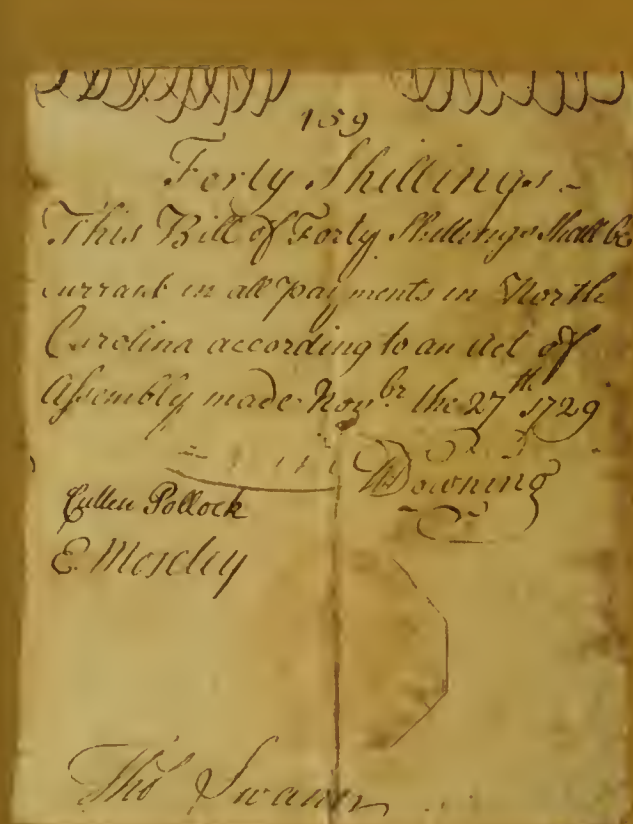 159
Forty Shillings -
This Bill of Forty Shillings Shall be
currant in all payments in North
Carolina according to an Act of
Assembly made Novbr. the 27th 1729
WDowning
Cullen Pollock
E Moseley
Tho Swann